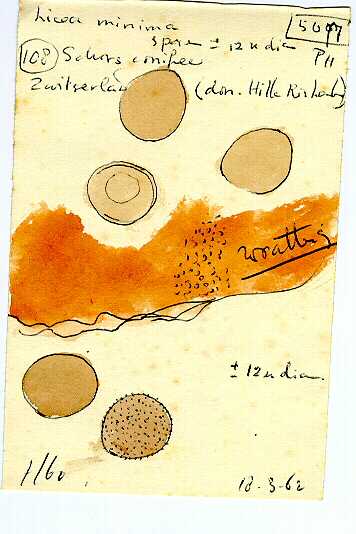 Licea minima
5077
spore ± 12 u dia
PH
108 Schors conifeer
Zwitserland
(don. Hille Ris
wratten
± 12 u dia.
1/60
18-3-62